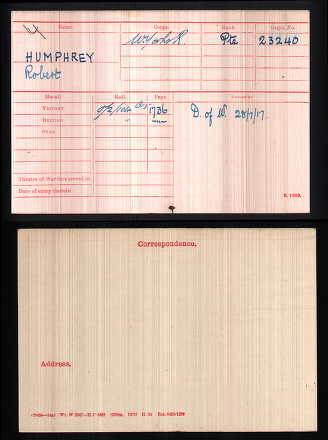 Name. Corps. Rank. Regtl. No.
HUMPHREY W. Yorks R. Pte 23240
Robert
Medal. Roll. Page. Remarks.
Victory 1736 D. of W. 28/7/17.
British "
Star
Theatre of War first served in
Date of entry therein
K. 1380.
Correspondence.
Address.